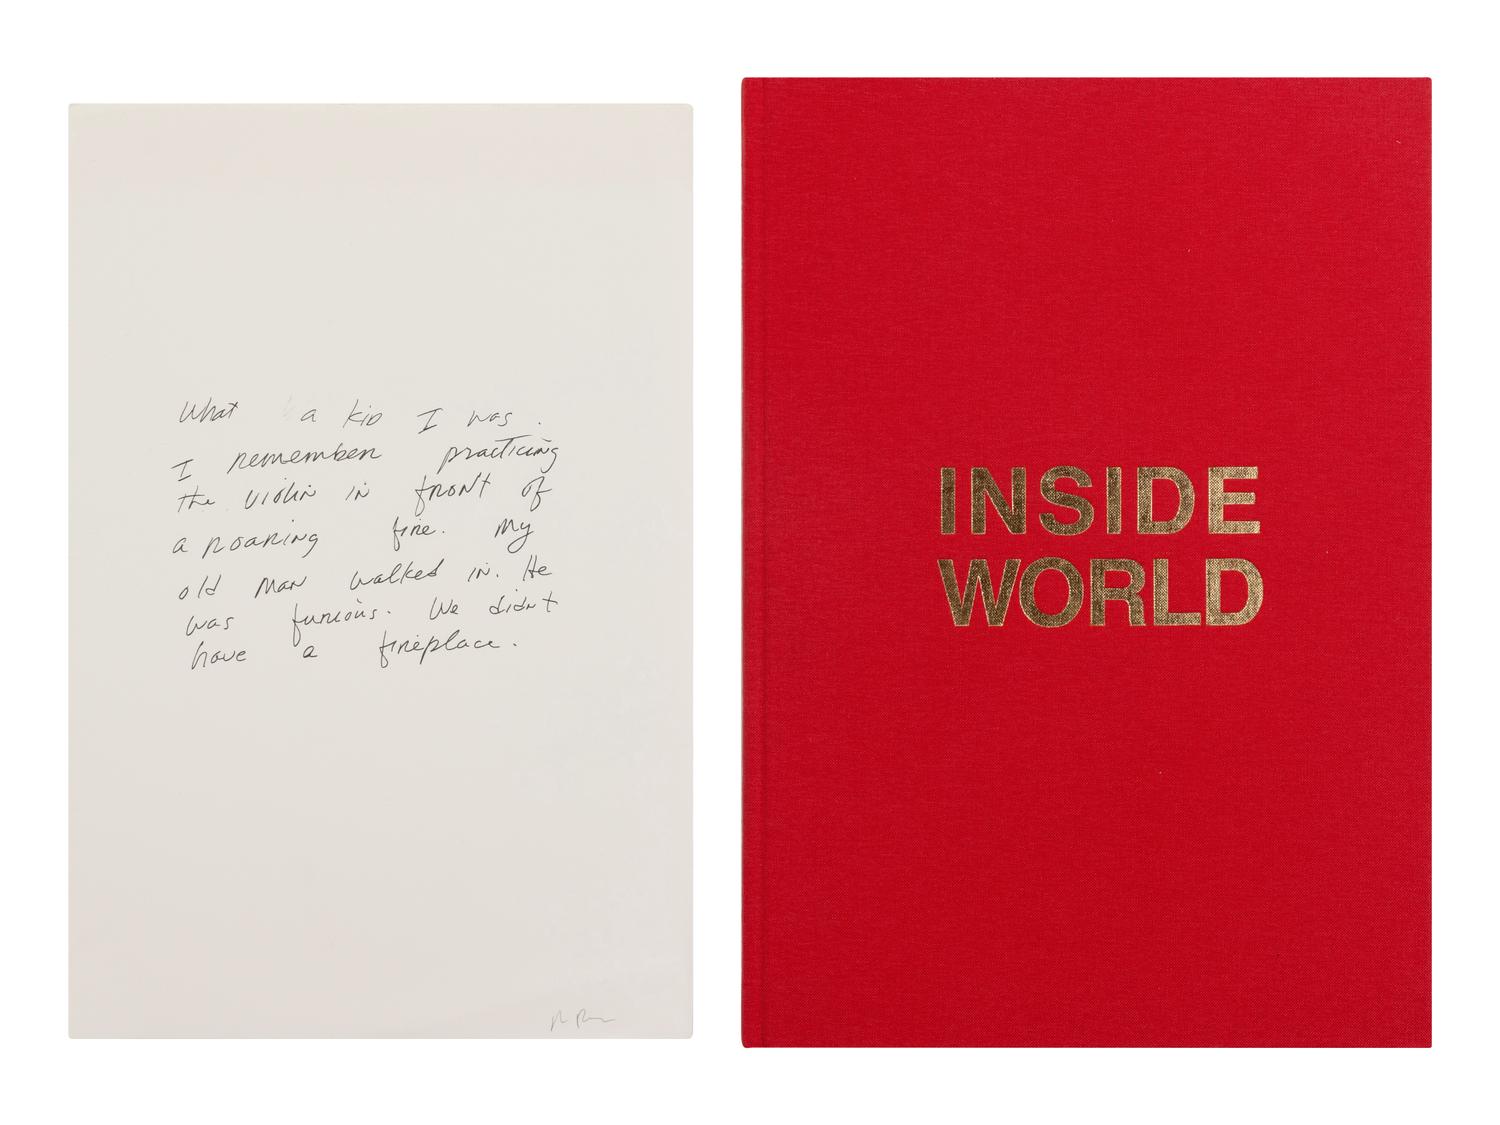 What a kid I was.
I remember practicing
the violin in front of
a roaring fire. My
old man walked in. He
was furious. We didn't
have a fireplace.
INSIDE
WORLD